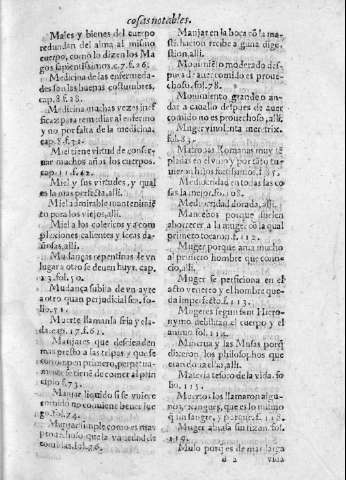 cosas notables.
Males y bienes del cuerpo
redundan del alma al mismo
cuerpo, como lo dizen los Ma
gos sapientissimos. c.7.f.26.
Medicina de las enfermeda-
des son las buenas costumbres,
cap.8.f.28.
Medicina muchas vezes inef
ficaz para remediar al enfermo
y no por falta de la medicina,
cap.8.f.32.
Miel tiene virtud de conser-
uar muchos años los cuerpos.
cap.11.f.62.
Miel y sus virtudes, y qual
es la mas perfecta, alli.
Miel admirable mantenimiē
to para los viejos, alli.
Miel a los colericos y a com
plexiones calientes y secas da-
ñosas, alli.
Mudanças repentinas de vn
lugar a otro se deuen huyr. cap.
23.fol.50.
Mudança subita de vn ayre
a otro quan perjudicial sea. fo-
lio.51.
Muerte llamanla fria y ela-
da. cap.17.f.61.
Manjares que descienden
mas presto a las tripas y que se
comen primero,
se tiene de comer al prin
cipio f.73.
Manjar liquido si se vuiere
comido no conuiene beuer lue
go.fol.74.
Manjar simple como es mas
prouechoso que la variedad de
comidas.fol.76.
Manjar en la boca cō la ma-
sticacion recibe alguna dige-
stion. alli.
Mouimiēto moderado des-
pues de auer comido es proue-
choso. fol.78.
Mouimiento grande o an-
dar a cauallo despues de auer
comido no es prouechoso, alli.
Muger vinolenta meretrix.
fol.83.
Matronas Romanas muy tē
pladas en el vino y por esto tu-
uieron hijos fuertissimos. f.85.
Mediocridad en todas las co
sas la mejor. fo.108.
Mediocridad dorada, alli.
Mancebos porque suelen
aborrecer a la muger cō la qual
primero tocaron. f.112.
Muger porque ama mucho
al primero hombre que cono-
cio, alli.
Muger se perficiona en el
acto venereo y el hombre que-
da imperfecto. f.113.
Mugeres segun sent Hiero-
nymo debilitan el cuerpo y el
animo fol.114.
Minerua y las Musas porq̄
dixeron los philosophos que
eran donzellas, alli.
Materia tesoro de la vida. fo
lio.115.
Muertos los llamaron algu-
nos, que es lo mismo
q̄ sin sangre, y porque. f.118.
Muger abrasa sin tizon. fol.
119.
Mulo porq̄ es de mas larga
vida